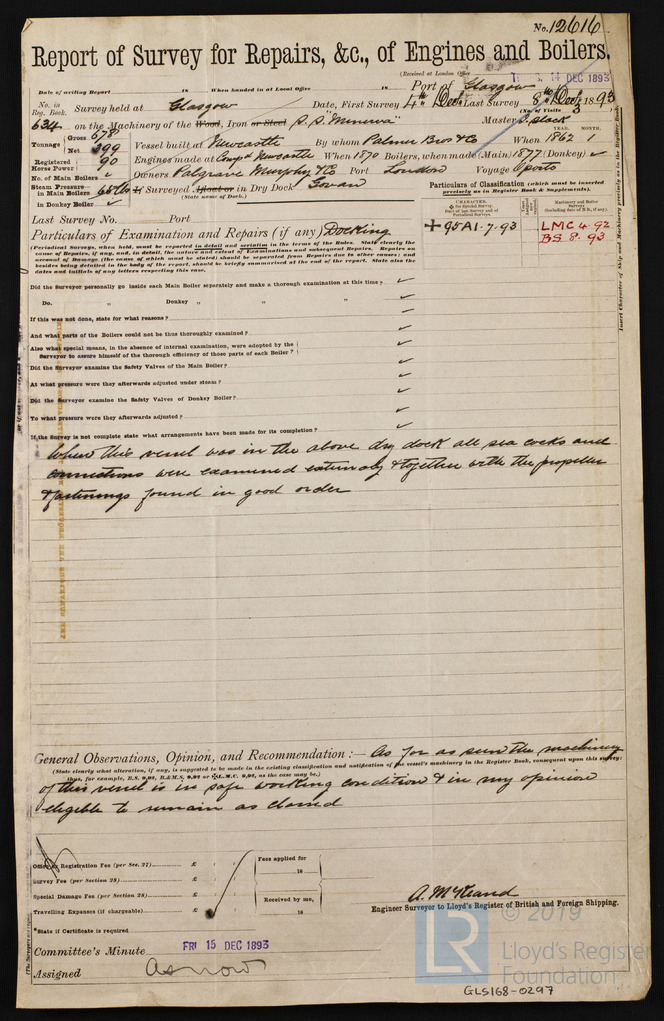 No. 12616
Report of Survey for Repairs, &c., of Engines and Boilers.
(Received at London Office 14 DEC 1893
Date of writing Report 18 When handed in at Local Office 18 Port of Glasgow
No. in Reg. Book. Survey held at Glasgow Date, First Survey 4th Dec Last Survey 8th Dec 1893
(No. of Visits 3
634 on the Machinery of the Wood, Iron or Steel S.S. "Minerva" Master S. Slack
Tonnage Gross 678 Net 399 Vessel built at Newcastle By whom Palmer Bros & Co When 1862 YEAR. MONTH. 1
Registered Horse Power 90 Engines made at Newcastle When 1870 Boilers, when made (Main) 1877 (Donkey) ✓
No. of Main Boilers ✓ Owners Palgrave Murphy & Co Port London Voyage Oporto
Steam Pressure in Main Boilers 65 lbs If Surveyed Afloat or in Dry Dock Govan
(State name of Dock.)
in Donkey Boiler ✓
Particulars of Classification (which must be inserted precisely as in Register Book & Supplements).
CHARACTER.
Machinery and Boiler Surveys
+95A1·7.93 LMC 4.92
BS 8.93
Insert Character of Ship and Machinery precisely as in the Register Book
Last Survey No. Port
Particulars of Examination and Repairs (if any) Docking
(Periodical Surveys, when held, must be reported in detail and seriatim in the terms of the Rules. State clearly the
cause of Repairs, if any, and, in detail, the nature and extent of Examinations and subsequent Repairs. Repairs on
account of Damage (the cause of which must be stated) should be separated from Repairs due to other causes; and
besides being detailed in the body of the report, should be briefly summarised at the end of the report. State also the
dates and initials of any letters respecting this case.
Did the Surveyor personally go inside each Main Boiler separately and make a thorough examination at this time? ✓
Do. " Donkey " " " ✓
If this was not done, state for what reasons? ✓
And what parts of the Boilers could not be thus thoroughly examined? ✓
Also what special means, in the absence of internal examination, were adopted by the
Surveyor to assure himself of the thorough efficiency of those parts of each Boiler? ✓
Did the Surveyor examine the Safety Valves of the Main Boiler? ✓
At what pressure were they afterwards adjusted under steam? ✓
Did the Surveyor examine the Safety Valves of Donkey Boiler? ✓
To what pressure were they afterwards adjusted? ✓
If the Survey is not complete state what arrangements have been made for its completion? ✓
When this vessel was in the above dry dock all sea cocks and
connections were examined externally & together with the propeller
& fastenings found in good order
General Observations, Opinion, and Recommendation:— As far as seen the machinery
(State clearly what alteration, if any, is suggested to be made in the existing classification and notification of the vessel's machinery in the Register Book, consequent upon this survey;
thus, for example, B.S. 9,91, B.&M.S. 9,91 or ✠L.M.C. 9,91, as the case may be.)
of this vessel is in safe working condition & in my opinion
eligible to remain as classed
Office or Registration Fee (per Sec. 27) £
Survey Fee (per Section 28) £
Special Damage Fee (per Section 28) £
Travelling Expenses (if chargeable) £
Fees applied for
18
Received by me,
18
A. McKeand
Engineer Surveyor to Lloyd's Register of British and Foreign Shipping.
*State if Certificate is required
Committee's Minute FRI 15 DEC 1893
Assigned As now
© 2019
LR
Lloyd's Register
Foundation
GLS168-0297